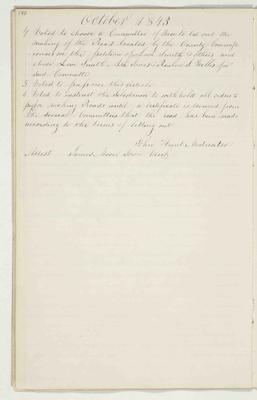 October 1843
4 Voted to choose a Committee of three to let out the
making of the Road located by the County Commis
sioners on the petition of Smith & others and
chose Levi Smith
said Committee
5 Voted to pass over this article
6 Voted to instruct the Selectmen to withhold all orders
for making Roads until a certificate is received from
the several Committees that the road has been made
according to the terms of letting out
Moderator
Attest James Town Clerk